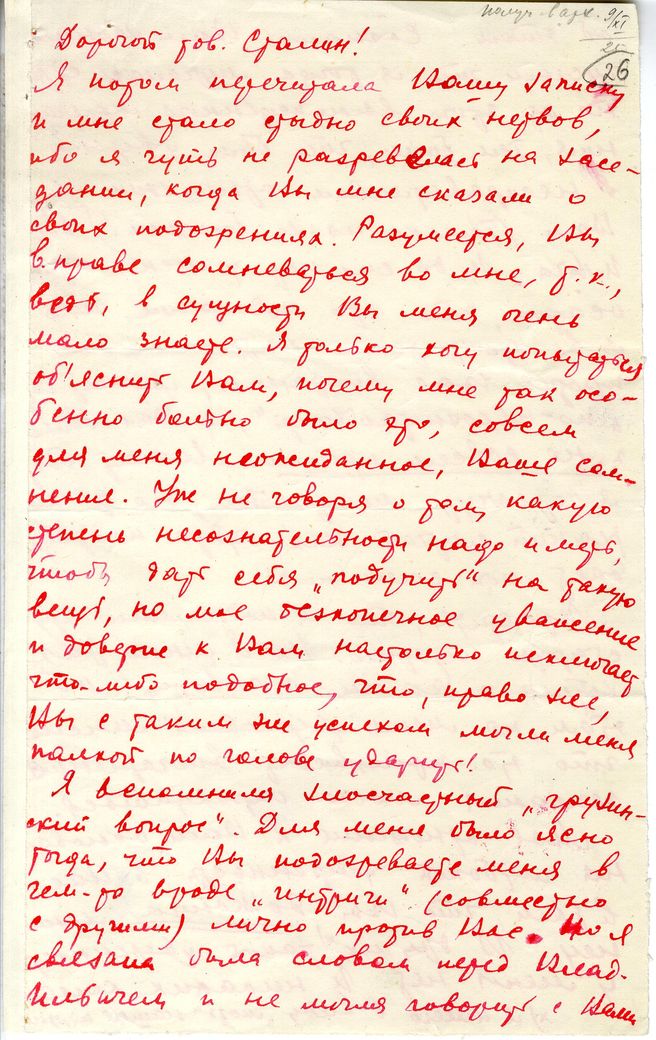 получ. в арх. 9/XI
26
Дорогой тов. Сталин!
Я потом перечитала Вашу записку
и мне стало стыдно своих нервов,
ибо я чуть не разревелась на засе-
дании, когда Вы мне сказали о
своих подозрениях. Разумеется, Вы
вправе сомневаться во мне, т.к.,
ведь, в сущности Вы меня очень
мало знаете. Я только хочу попытаться
об'яснить Вам, почему мне так осо-
бенно больно было это, совсем
для меня неожиданное, Ваше сом-
нение. Уже не говоря о том, какую
степень несознательности надо иметь,
чтобы дать себя „подучить“ на такую
вещь, но мое бесконечное уважение
и доверие к Вам настолько исключает
что-либо подобное, что, право же,
Вы с таким же успехом могли меня
палкой по голове ударить!
Я вспомнила злосчастный „грузин-
ский вопрос“. Для меня было ясно
тогда, что Вы подозреваете меня в
чем-то вроде „интриги“ (совместно
с другими) лично против Вас. Но я
связана была словом перед Влад.
Ильичем и не могла говорить с Вами